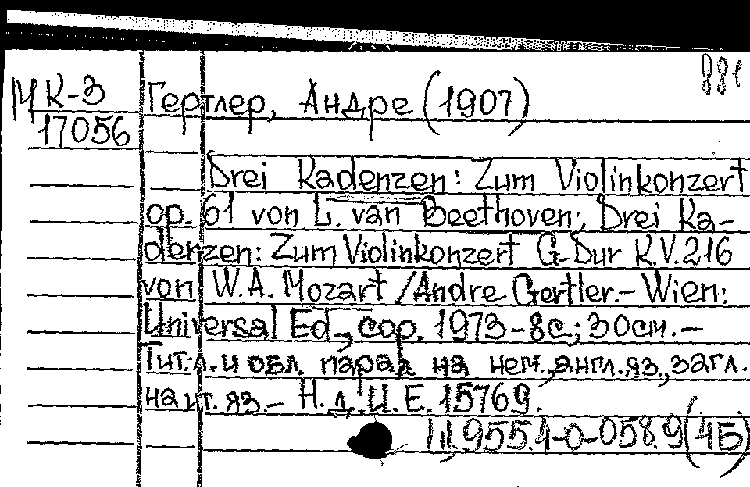 881
МК-3 Гертлер, Андре (1907)
17056
Drei Kadenzen: Zum Violinkonzert
op. 61 von L. van Beethoven; Drei Ka-
denzen: Zum Violinkonzert G-Dur K.V.216
von W.A. Mozart / Andre Gertler.- Wien:
Universal Ed., cop. 1973 - 8с; 30см.-
Тит.л. и обл. парал на нем., англ.яз., загл.
на ит. яз.- Н. д.: U.E. 15769.
955.4-0-058.9(4Б)